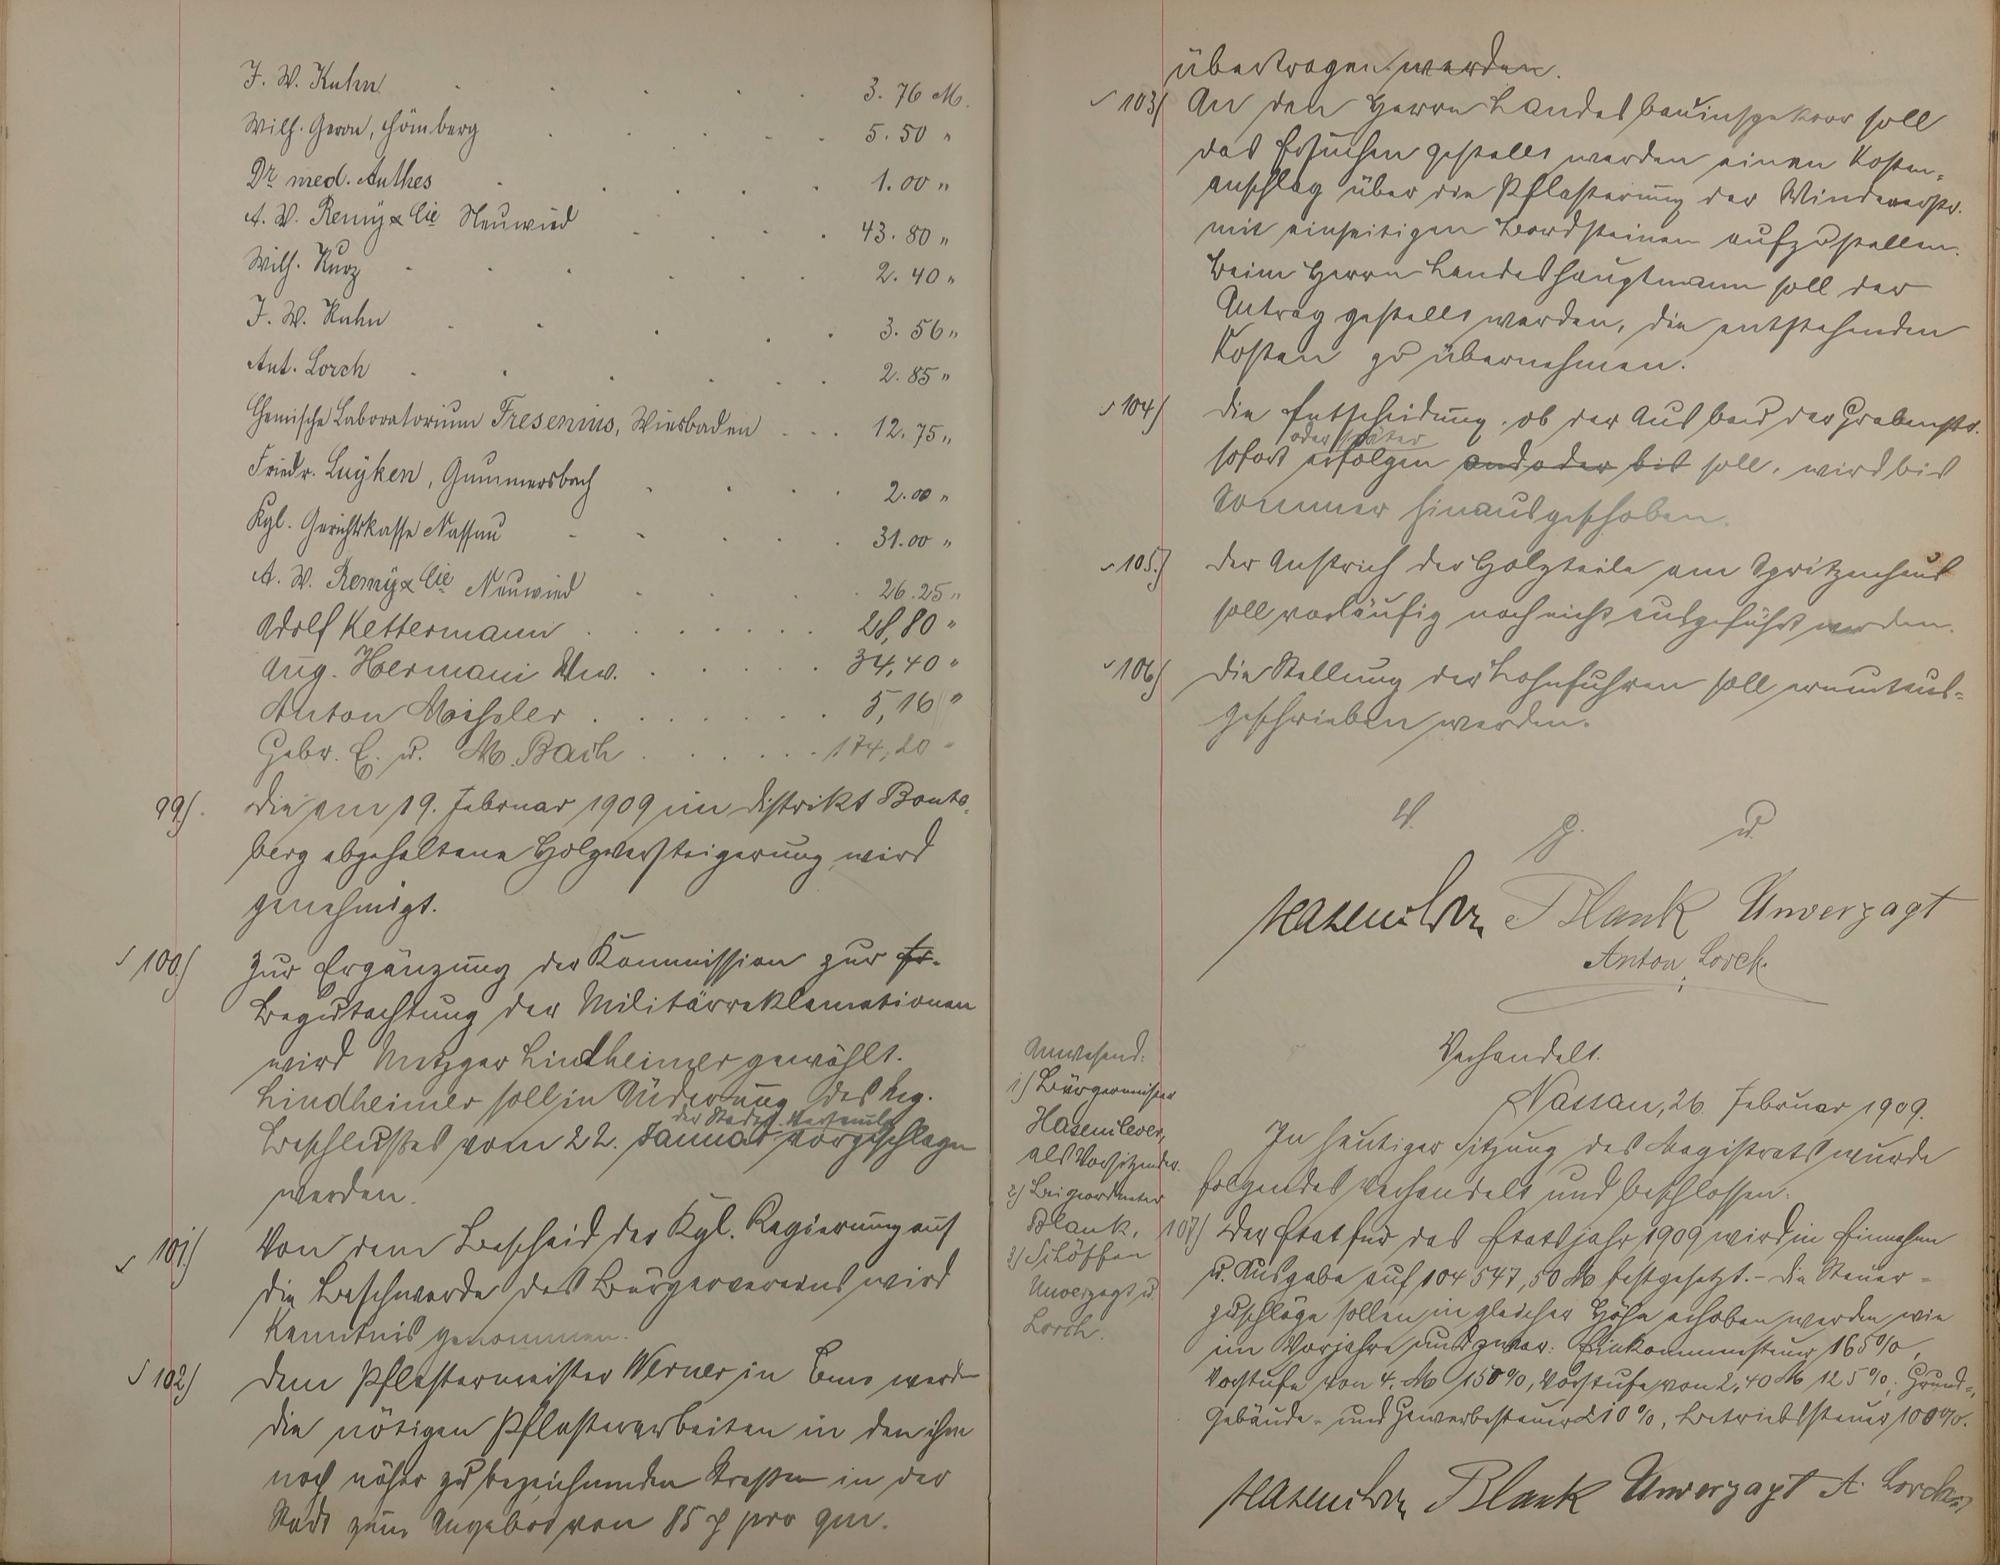 J. W. Kuhn . . . . . 3. 76 M.
Wilh. Geron, Hömberg . . . . 5. 50 "
Dr. med. Anthes . . . . . 1. 00 "
A. W. Remy & Cie Neuwied . . . . 43. 80 "
Wilh. Kurz . . . . . . 2. 40 "
J. W. Kuhn . . . . . 3. 56 "
Ant. Lorch . . . . . . 2. 85 "
Chemische Laboratorium Fresenius, Wiesbaden . . . 12. 75 "
Friedr. Luyken, Gummersbach . . . . 2. 00 "
Kgl. Gerichtskasse Nassau . . . . . 31. 00 "
A. W. Remy & Cie Neuwied . . . . 26. 25 "
Adolf Kettermann . . . . . . . 28,80 "
Aug. Hermani Ww. . . . . . 34,40 "
Anton Meißler . . . . . . . 5,16 "
Gebr. E. u. M. Bach . . . . . . 174,20 "
99). Die am 19. Februar 1909 im Distrikt
berg abgehaltene Holzversteigerung wird
genehmigt.
100) Zur Ergänzung der Kommission zur Er-
Begutachtung der Militärreklamationen
wird Metzger Lindheimer gewählt.
Lindheimer soll in Änderung des Mg.
der Stadtv. Versamlg.
Beschlußes vom 22. Januar vorgeschlagen
werden.
101) Von dem Bescheid der Kgl. Regierung auf
die Beschwerde des Bürgervereins wird
Kenntnis genommen.
102) Dem Pflastermeister Werner in Ems werden
die nötigen Pflasterarbeiten in den ihm
noch näher zu bezeichnenden Straßen in der
Stadt zum Angebot von 85 ₰ pro qm.
übertragen werden.
103) An den Herrn Landesbauinspektor soll
das Ersuchen gestellt werden einen Kosten-
anschlag über die Pflasterung der Windenerstr.
mit einseitigen Bordsteinen aufzustellen.
Beim Herrn Landeshauptmann soll der
Antrag gestellt werden, die entstehenden
Kosten zu übernehmen.
104) Die Entscheidung, ob der Ausbau der Grabenstr.
oder später
sofort erfolgen und oder bis soll, wird bis
Sommer hinausgeschoben.
105.) Der Anstrich der Holzteile am Spritzenhaus
soll vorläufig noch nicht ausgeführt werden.
106) Die Stellung der Lohnfuhren soll erneut aus-
geschrieben werden.
v. g. u.
Hasenclever Blank Unverzagt
Anton Lorch.
Verhandelt.
Nassau, 26. Februar 1909.
Anwesend:
1) Bürgermeister
Hasenclever,
als Vorsitzender.
2) Beigeordneter
Blank,
3) Schöffen
Unverzagt u.
Lorch.
In heutiger Sitzung des Magistrats wurde
folgendes verhandelt und beschlossen:
107) Der Etat für das Etatsjahr 1909 wird in Einnahme
u. Ausgabe auf 104547,50 M festgesetzt. - Die Steuer-
zuschläge sollen in gleicher Höhe erhoben werden wie
im Vorjahre und zwar: Einkommensteuer 165%,
Vorstufe von 4. M 150%, Vorstufe von 2,40 M 125%, Grund-,
Gebäude- und Gewerbesteuer 210%, Betriebssteuer 100%.
Hasenclever Blank Unverzagt A. Lorch